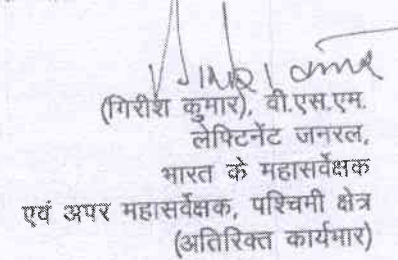 (गिरीश कुमार), वी.एस.एम.
लेफ्टिनेंट जनरल,
भारत के महासर्वेक्षक
एवं अपर महासर्वेक्षक, पश्चिमी क्षेत्र
(अतिरिक्त कार्यभार)